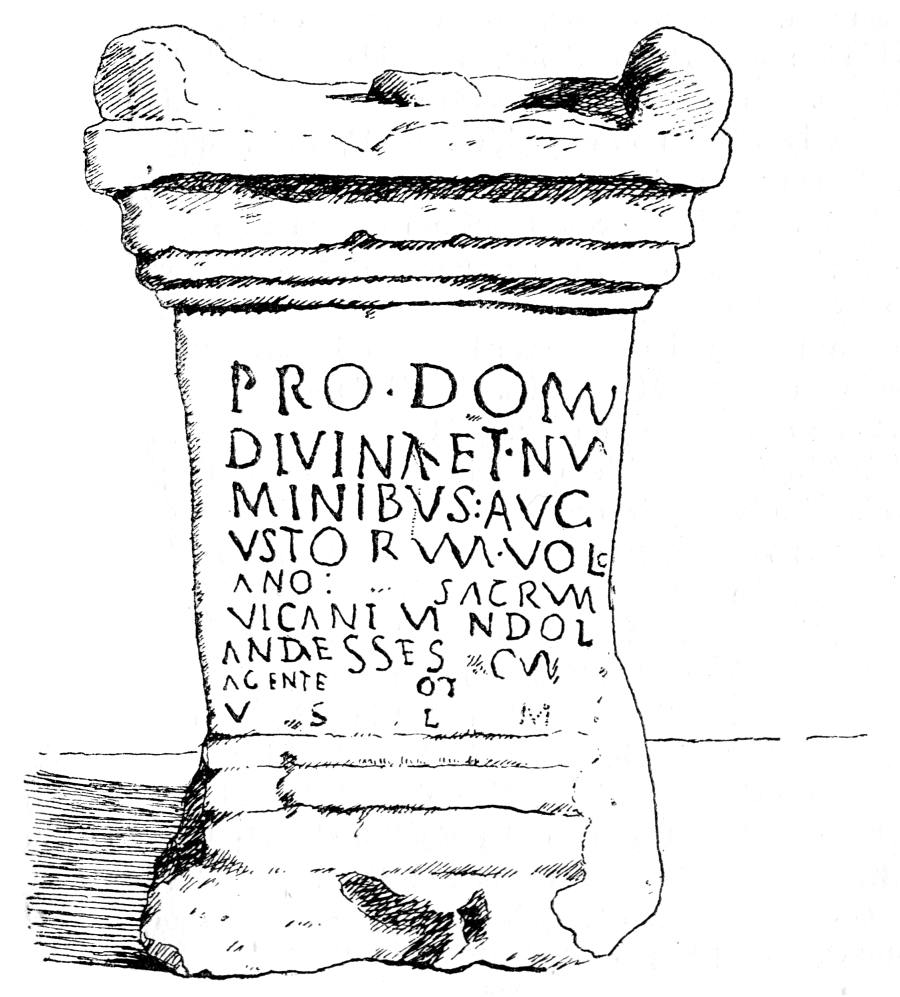 PRO·DOMV
DIVINA ET·NV
MINIBVS:AVG
VSTORVM·VOLC
ANO: SACRVM
VICANI VINDOL
ANDESSES CV
AGENTE
V S L M